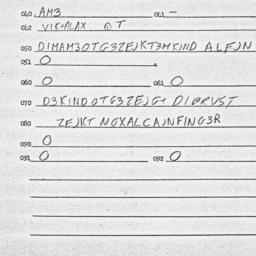 040 AM3 041 —
042 VIK+ALAX @ T
050 DIMAM3OTG3ZEJKT3MKIND ALEJN
051 O .
060 O 061 O
070 D3KINDOTG3ZEJG+ DIBRUST
080 ZEJKT NOXALCAJNFING3R
090 O
091 O 092 O